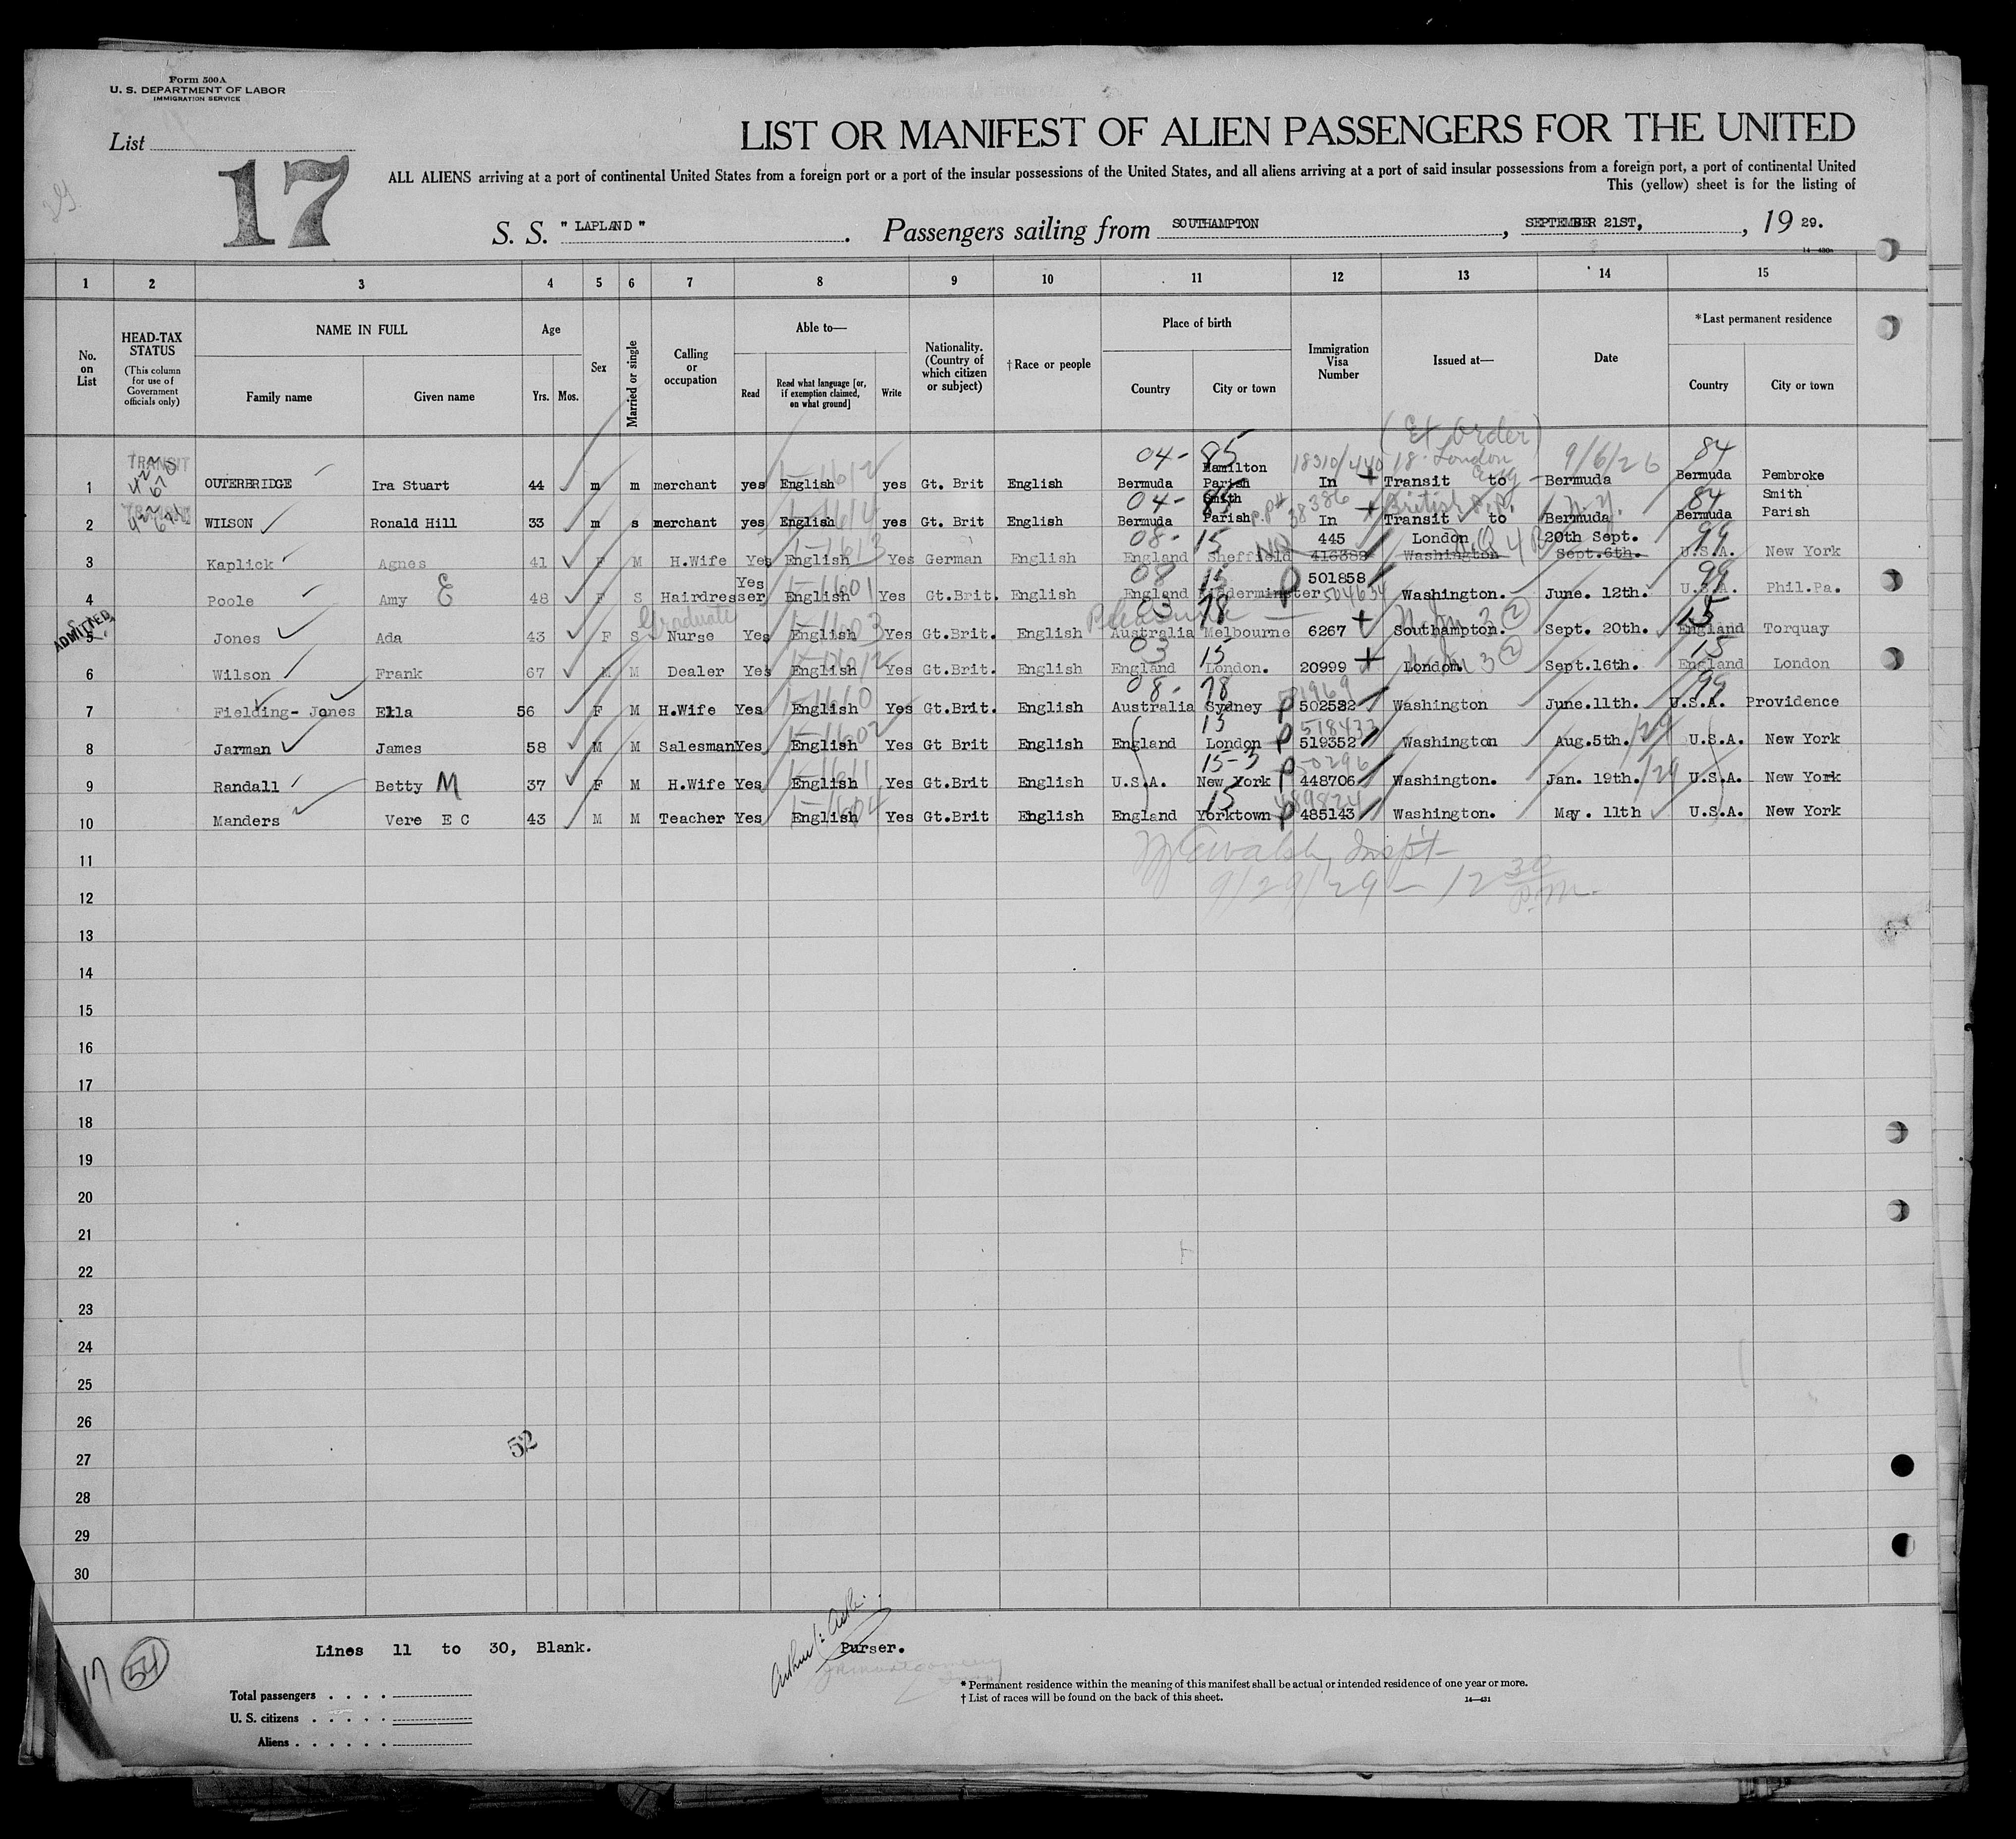 Form 500A
U. S. DEPARTMENT OF LABOR
IMMIGRATION SERVICE
List
17
LIST OR MANIFEST OF ALIEN PASSENGERS FOR THE UNITED
ALL ALIENS arriving at a port of continental United States from a foreign port or a port of the insular possessions of the United States, and all aliens arriving at a port of said insular possessions from a foreign port, a port of continental United
This (yellow) sheet is for the listing of
S. S. " LAPLAND " . Passengers sailing from SOUTHAMPTON , SEPTEMBER 21ST, , 19 29.
1 2 3 4 5 6 7 8 9 10 11 12 13 14 15
No. on List
HEAD-TAX STATUS (This column for use of Government officials only)
NAME IN FULL Family name Given name
Age Yrs. Mos.
Sex
Married or single
Calling or occupation
Able to— Read Read what language [or, if exemption claimed, on what ground] Write
Nationality. (Country of which citizen or subject)
† Race or people
Place of birth Country City or town
Immigration Visa Number
Issued at—
Date
*Last permanent residence Country City or town
(Ex Order)
TRANSIT 04- 85 18310/440 18. London 9/6/26 84
1 OUTERBRIDGE Ira Stuart 44 m m merchant yes English yes Gt. Brit English Bermuda Hamilton Parish In Transit to Bermuda Bermuda Pembroke
04- 85 P.P.# 38386 British P.P. N.Y. 84
2 WILSON Ronald Hill 33 m s merchant yes English yes Gt. Brit English Bermuda Smith Parish In Transit to Bermuda Bermuda Smith Parish
08- 15 NQ 445 London 20th Sept. 99
3 Kaplick Agnes 41 F M H.Wife Yes English Yes German English England Sheffield 416382 Washington Sept.6th. U.S.A. New York
08 15 P 501858 504634 99
4 Poole Amy E 48 F S Hairdresser Yes English Yes Gt.Brit. English England Kidderminster Washington. June. 12th. U.S.A. Phil.Pa.
ADMITTED
Graduate 03 78 15
5 Jones Ada 43 F S Nurse Yes English Yes Gt.Brit. English Australia Melbourne 6267 Southampton. Sept. 20th. England Torquay
03 15 15
6 Wilson Frank 67 M M Dealer Yes English Yes Gt.Brit. English England London. 20999 London. Sept.16th. England London
08- 78 P 99
7 Fielding- Jones Ella 56 F M H.Wife Yes English Yes Gt.Brit. English Australia Sydney 502582 Washington June.11th. U.S.A. Providence
15 P 518433
8 Jarman James 58 M M Salesman Yes English Yes Gt Brit English England London 519352 Washington Aug.5th. /29 U.S.A. New York
15-3 P
9 Randall Betty M 37 F M H.Wife Yes English Yes Gt.Brit English U.S.A. New York 448706 Washington. Jan. 19th. /29 U.S.A. New York
15 P 489824
10 Manders Vere E C 43 M M Teacher Yes English Yes Gt.Brit English England Yorktown 485143 Washington. May. 11th U.S.A. New York
11
Walsh, Inspt
9/29/29 - 12 30 P.M.
12
13
14
15
16
17
18
19
20
21
22
23
24
25
26
52
27
28
29
30
17 54
Lines 11 to 30, Blank.
Purser.
Total passengers . . . .
U. S. citizens . . . . .
Aliens . . . . . .
* Permanent residence within the meaning of this manifest shall be actual or intended residence of one year or more.
† List of races will be found on the back of this sheet.
14—431